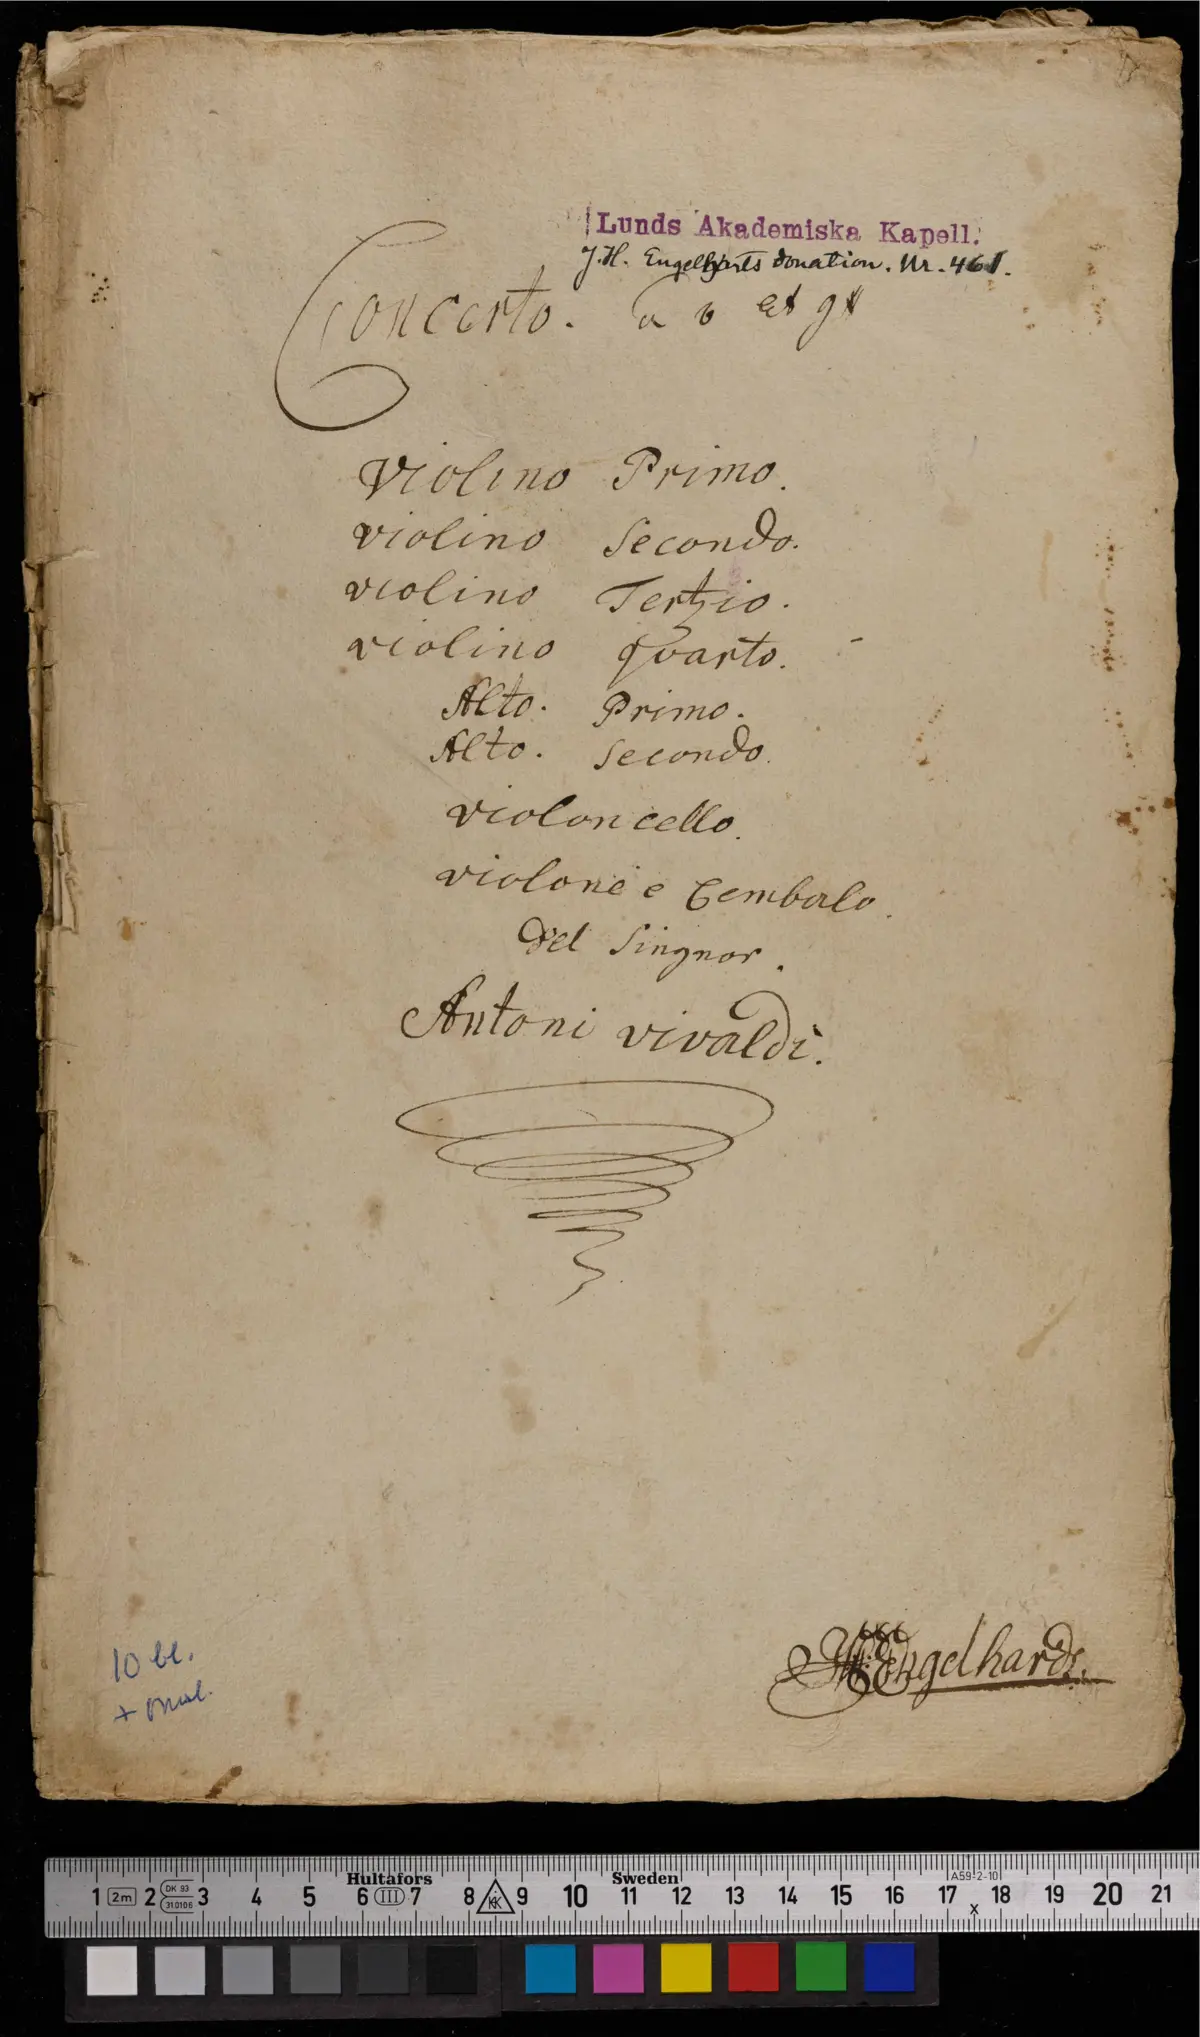 Lunds Akademiska Kapell.
J. H. Engelharts donation. Nr. 461.
Concerto. a
Violino Primo.
violino Secondo.
violino Tertzio.
violino quarto.
Alto. Primo.
Alto. Secondo.
violoncello.
violone e Cembalo.
Del Singnor.
Antoni vivaldi.
Engelhardt.
10 bl.
+
Hultafors Sweden A59-2-10
1 2m 2 DK 93 310106 3 4 5 6 III 7 8 9 10 11 12 13 14 15 16 17 18 19 20 21
x